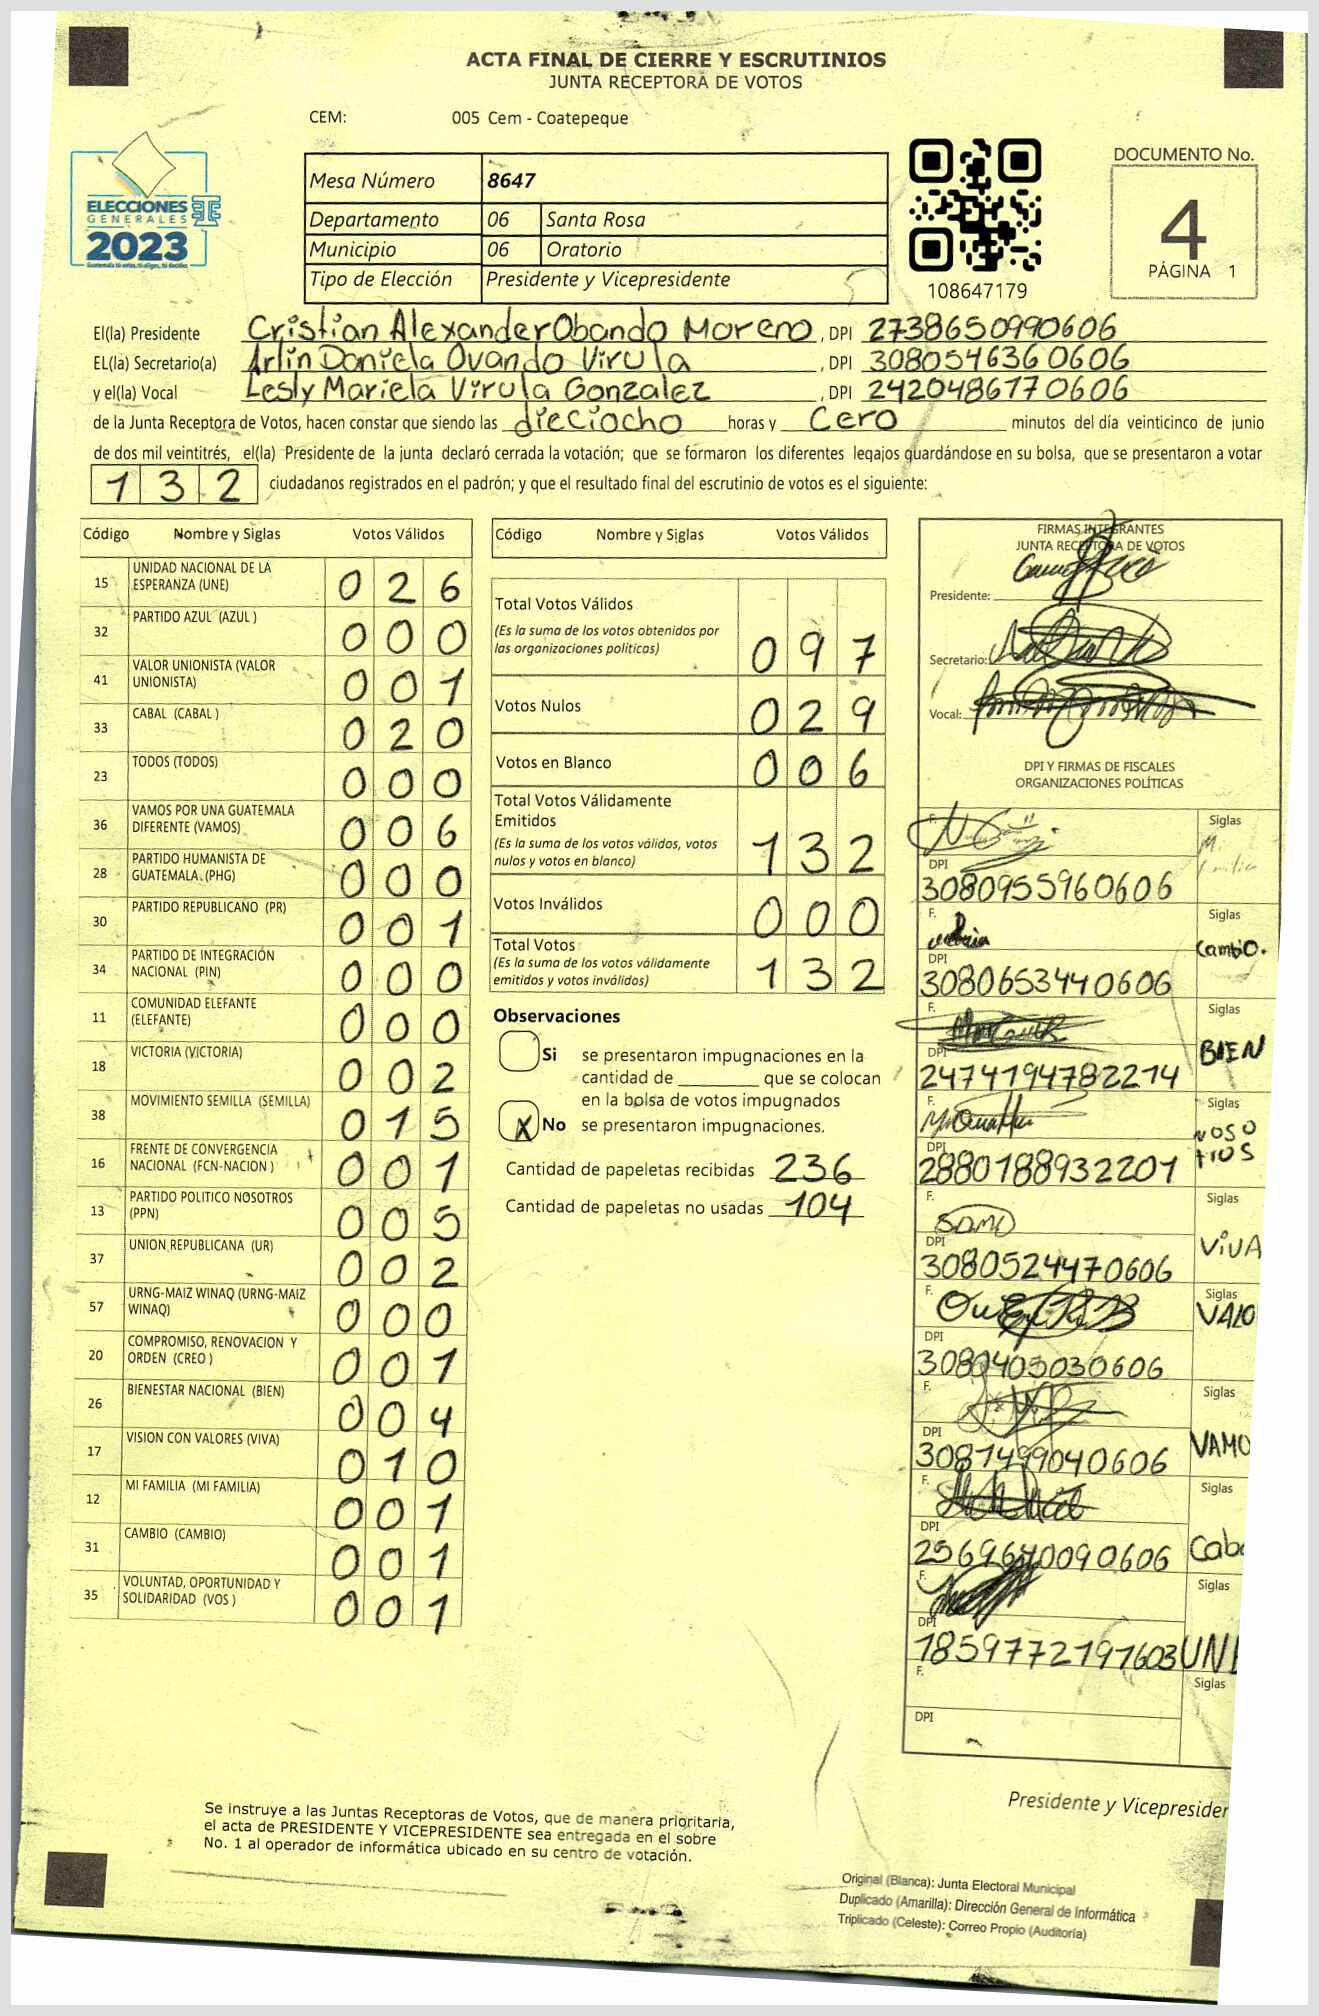 ACTA FINAL DE CIERRE Y ESCRUTINIOS
JUNTA RECEPTORA DE VOTOS
CEM: 005 Cem - Coatepeque
ELECCIONES
GENERALES
2023
Mesa Número 8647
Departamento 06 Santa Rosa
Municipio 06 Oratorio
Tipo de Elección Presidente y Vicepresidente
108647179
DOCUMENTO No.
4
PÁGINA 1
El(la) Presidente Cristian Alexander Obando Moreno, DPI 2738650990606
EL(la) Secretario(a) Arlin Daniela Ovando Virula, DPI 3080546360606
y el(la) Vocal Lesly Mariela Virula Gonzalez, DPI 2420486170606
de la Junta Receptora de Votos, hacen constar que siendo las dieciocho horas y Cero minutos del día veinticinco de junio
de dos mil veintitrés, el(la) Presidente de la junta declaró cerrada la votación; que se formaron los diferentes legajos guardándose en su bolsa, que se presentaron a votar
132 ciudadanos registrados en el padrón; y que el resultado final del escrutinio de votos es el siguiente:
Código Nombre y Siglas Votos Válidos
15 UNIDAD NACIONAL DE LA ESPERANZA (UNE) 026
32 PARTIDO AZUL (AZUL ) 000
41 VALOR UNIONISTA (VALOR UNIONISTA) 001
33 CABAL (CABAL ) 020
23 TODOS (TODOS) 000
36 VAMOS POR UNA GUATEMALA DIFERENTE (VAMOS) 006
28 PARTIDO HUMANISTA DE GUATEMALA (PHG) 000
30 PARTIDO REPUBLICANO (PR) 001
34 PARTIDO DE INTEGRACIÓN NACIONAL (PIN) 000
11 COMUNIDAD ELEFANTE (ELEFANTE) 000
18 VICTORIA (VICTORIA) 002
38 MOVIMIENTO SEMILLA (SEMILLA) 015
16 FRENTE DE CONVERGENCIA NACIONAL (FCN-NACION ) 001
13 PARTIDO POLITICO NOSOTROS (PPN) 005
37 UNION REPUBLICANA (UR) 002
57 URNG-MAIZ WINAQ (URNG-MAIZ WINAQ) 000
20 COMPROMISO, RENOVACION Y ORDEN (CREO ) 001
26 BIENESTAR NACIONAL (BIEN) 004
17 VISION CON VALORES (VIVA) 010
12 MI FAMILIA (MI FAMILIA) 001
31 CAMBIO (CAMBIO) 001
35 VOLUNTAD, OPORTUNIDAD Y SOLIDARIDAD (VOS ) 001
Código Nombre y Siglas Votos Válidos
Total Votos Válidos
(Es la suma de los votos obtenidos por
las organizaciones politicas) 097
Votos Nulos 029
Votos en Blanco 006
Total Votos Válidamente
Emitidos
(Es la suma de los votos válidos, votos
nulos y votos en blanco) 132
Votos Inválidos 000
Total Votos
(Es la suma de los votos válidamente
emitidos y votos inválidos) 132
Observaciones
Si se presentaron impugnaciones en la
cantidad de ________ que se colocan
en la bolsa de votos impugnados
X No se presentaron impugnaciones.
Cantidad de papeletas recibidas 236
Cantidad de papeletas no usadas 104
FIRMAS INTEGRANTES
JUNTA RECEPTORA DE VOTOS
Presidente:
Secretario:
Vocal:
DPI Y FIRMAS DE FISCALES
ORGANIZACIONES POLÍTICAS
F. Siglas
DPI
3080955960606
F. Siglas
Cambio.
DPI
3080653440606
F. Siglas
BIEN
DPI
2474194782214
F. Siglas
NOSO
tros
DPI
2880188932201
F. Siglas
VIVA
DPI
3080524470606
F. Siglas
VALO
DPI
3080403030606
F. Siglas
VAMO
DPI
3081499040606
F. Siglas
Cab
DPI
F. Siglas
UNE
DPI
1859772191603
F. Siglas
DPI
Presidente y Vicepresiden
Se instruye a las Juntas Receptoras de Votos, que de manera prioritaria,
el acta de PRESIDENTE Y VICEPRESIDENTE sea entregada en el sobre
No. 1 al operador de informática ubicado en su centro de votación.
Original (Blanca): Junta Electoral Municipal
Duplicado (Amarilla): Dirección General de Informática
Triplicado (Celeste): Correo Propio (Auditoría)